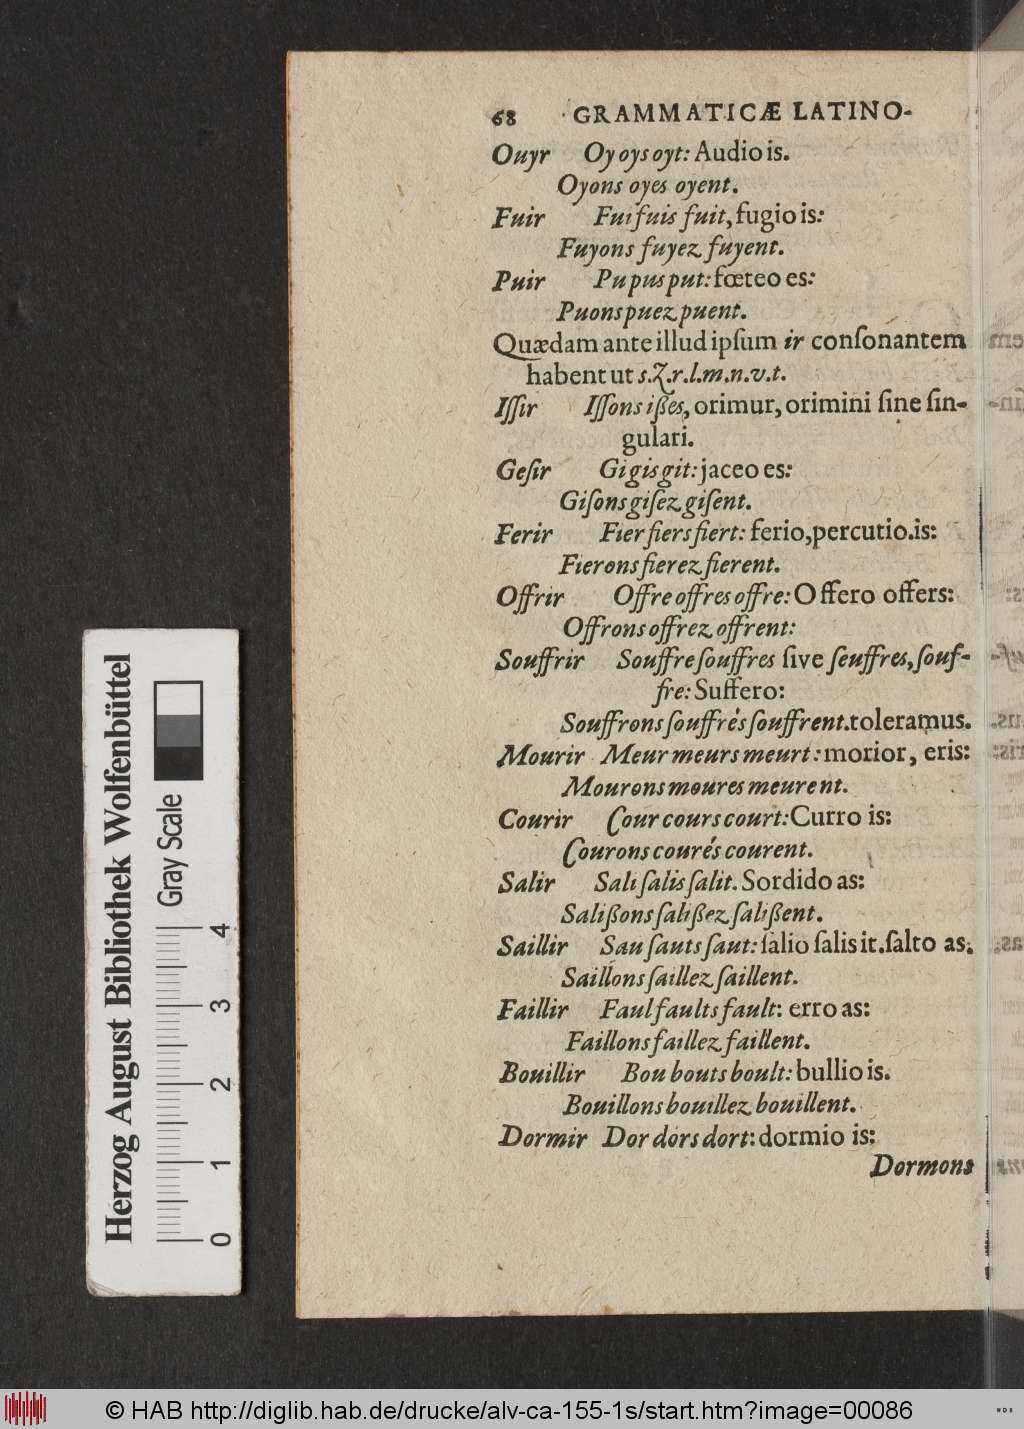 68 GRAMMATICÆ LATINO-
Ouyr Oy oys oyt: Audio is.
Oyons oyes oyent.
Fuir Fui fuis fuit, fugio is:
Fuyons fuyez fuyent.
Puir Pu pus put: fœteo es:
Puons puez puent.
Quædam ante illud ipſum ir conſonantem
habent ut s.Z.r.l.m.n.v.t.
Iſſir Iſſons ißes, orimur, orimini ſine ſin-
gulari.
Geſir Gi gis git: jaceo es:
Giſons giſez giſent.
Ferir Fier fiers fiert: ferio, percutio.is:
Fierons fierez fierent.
Offrir Offre offres offre: Offero offers:
Offrons offrez offrent:
Souffrir Souffre ſouffres ſive ſeuffres, ſouf-
fre: Suffero:
Souffrons ſouffrés ſouffrent. toleramus.
Mourir Meur meurs meurt: morior, eris:
Mourons moures meurent.
Courir Cour cours court: Curro is:
Courons courés courent.
Salir Sali ſalis ſalit. Sordido as:
Salißons ſalißez ſalißent.
Saillir Sau ſauts ſaut: ſalio ſalis it. ſalto as.
Saillons ſaillez ſaillent.
Faillir Faul faults fault: erro as:
Faillons faillez faillent.
Bouillir Bou bouts boult: bullio is.
Bouillons bouillez bouillent.
Dormir Dor dors dort: dormio is:
Dormons
Herzog August Bibliothek Wolfenbüttel
Gray Scale
0 1 2 3 4
© HAB http://diglib.hab.de/drucke/alv-ca-155-1s/start.htm?image=00086